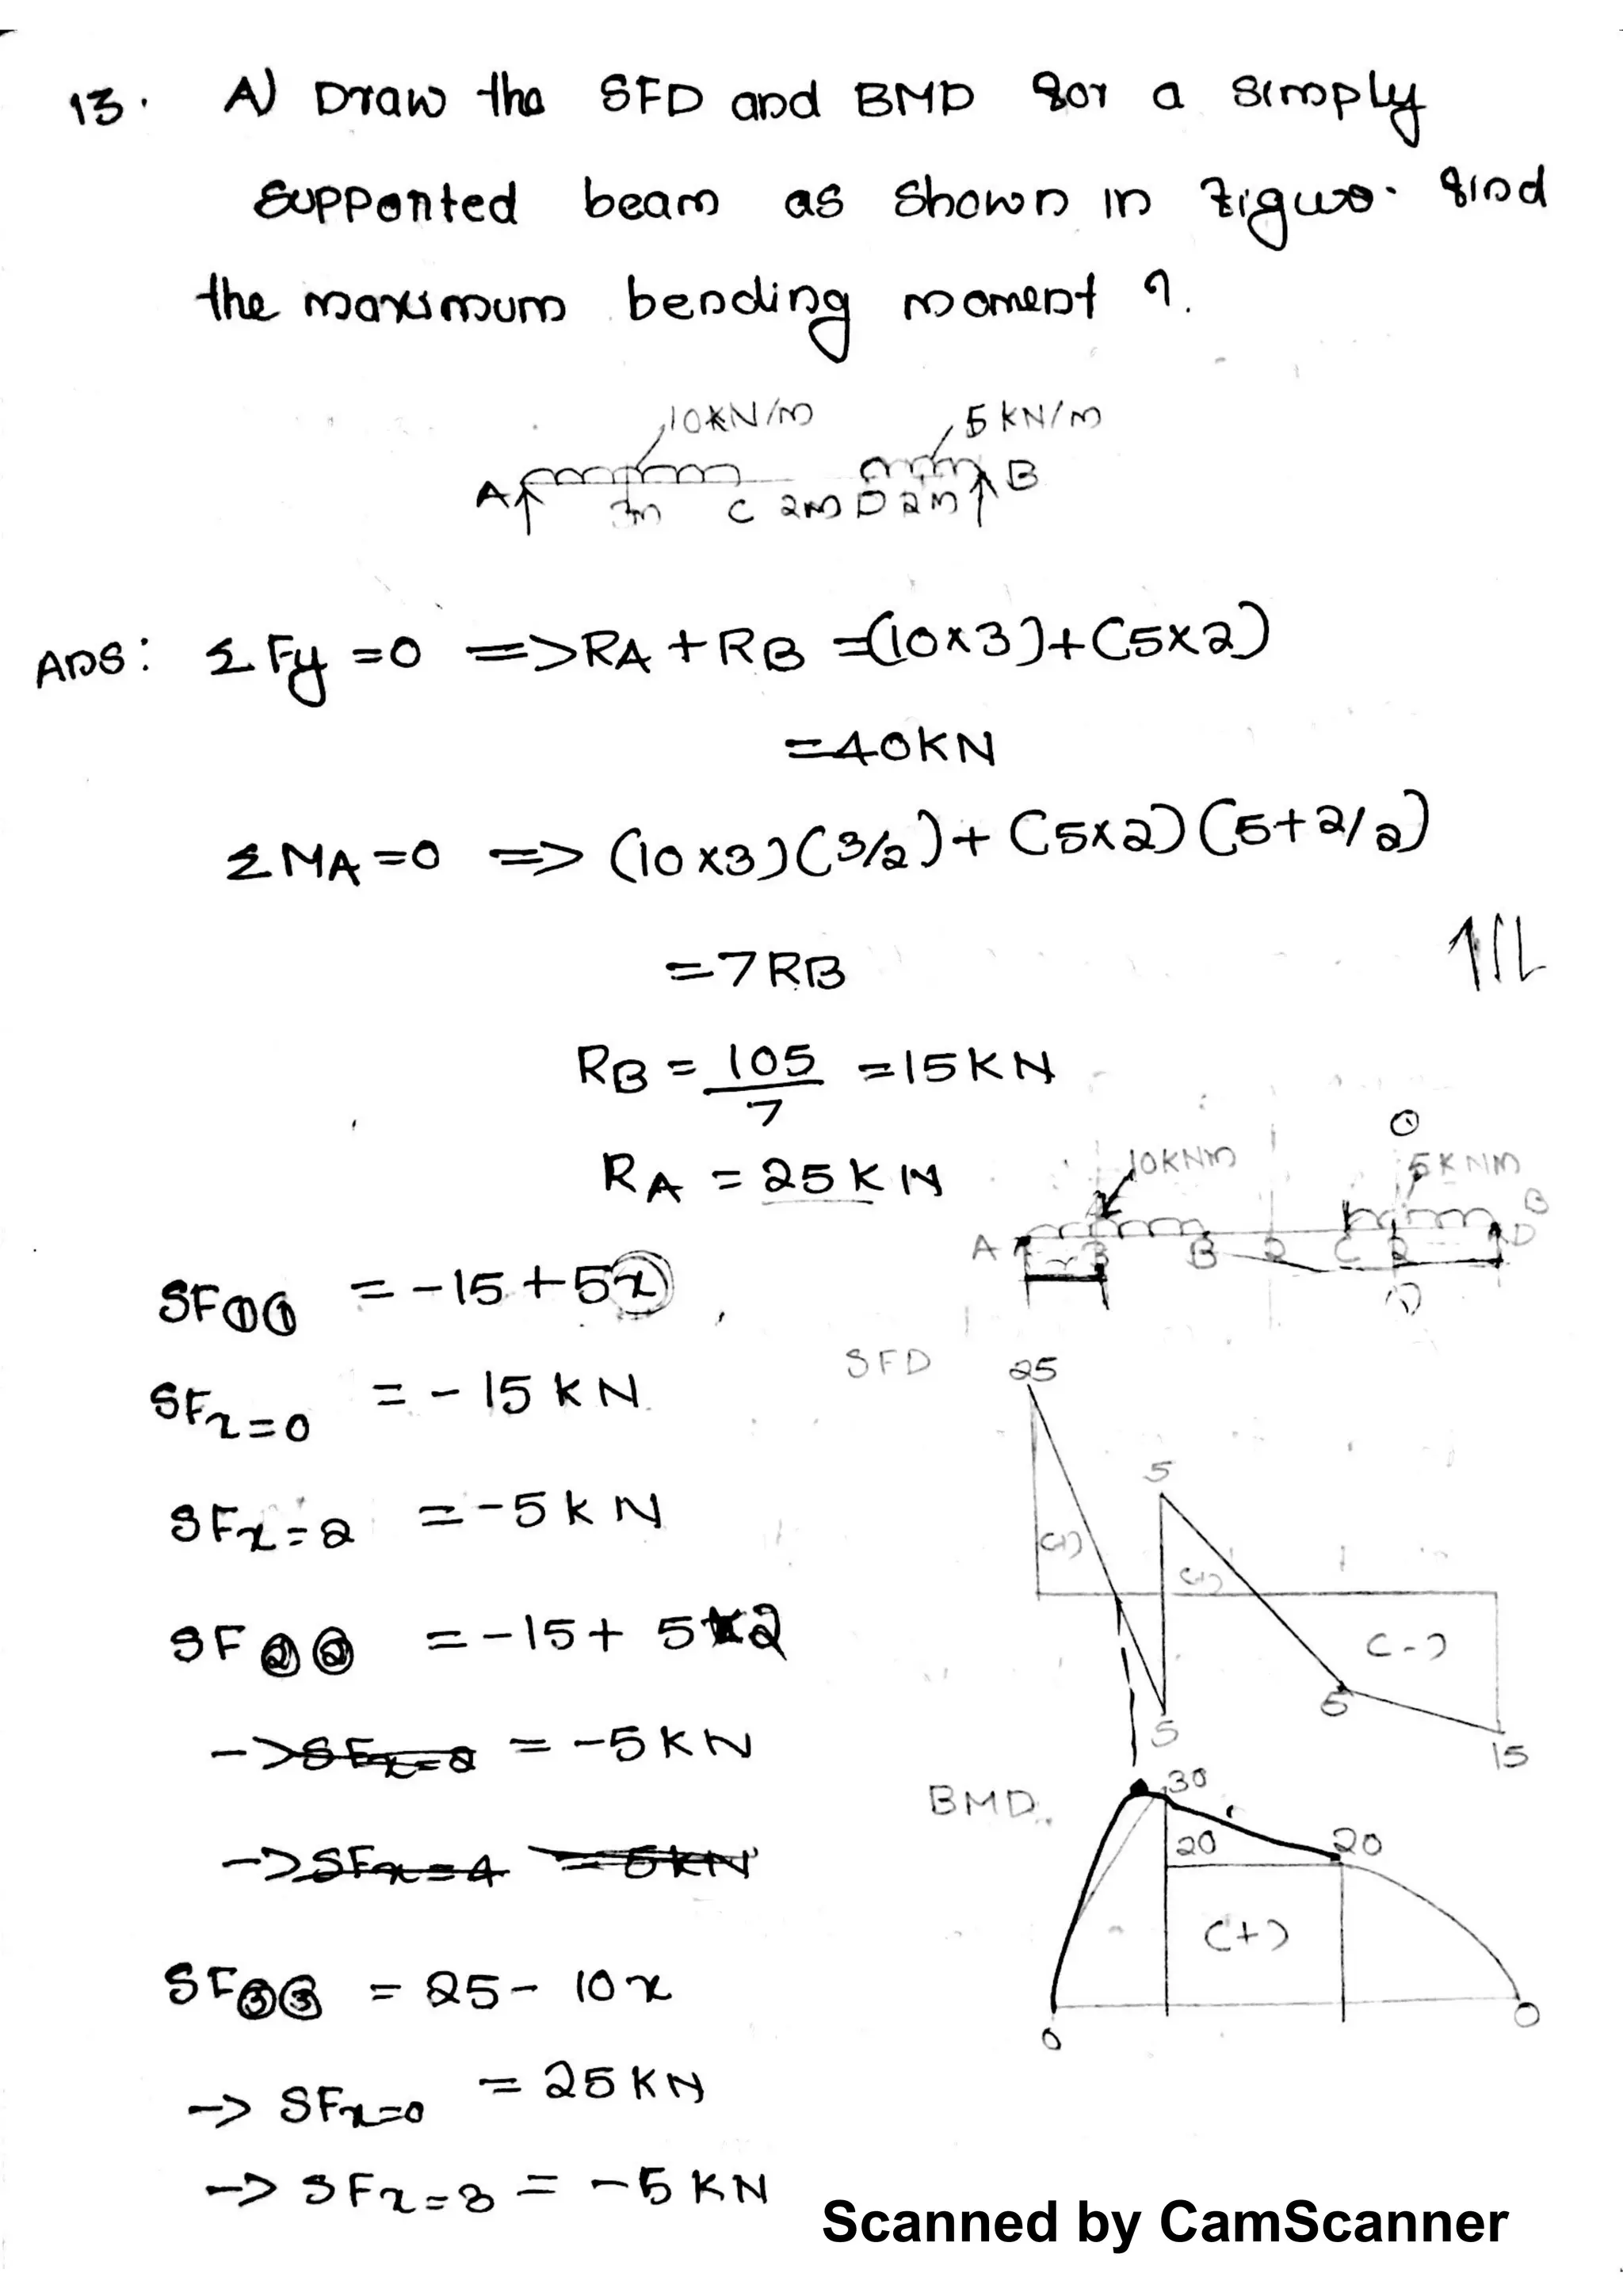 13. A) Draw the SFD and BMD for a simply
supported beam as shown in figure. find
the maximum bending moment ?.
10KN/m 5KN/m
A 3m C 2m D 2m B
Ans: ΣFy =0 => RA + RB =(10×3)+(5×2)
=40KN
ΣMA =0 => (10×3)(3/2)+(5×2)(5+2/2)
=7RB
RB = 105/7 =15KN
RA = 25KN
10KNm 5KNm
A 3 B 2 C 2 D B
SF①① = -15+5x
SFx=0 = -15KN
SFx=2 = -5KN
SF②② = -15+ 5×2
->SFx=0 = -5KN
->SFx=4 =5KN
SF③③ = 25- 10x
-> SFx=0 = 25KN
-> SFx=3 = -5KN
SFD
25
5
(+) (+) (-)
5 5 15
BMD.
30
20 20
(+)
0 0
Scanned by CamScanner